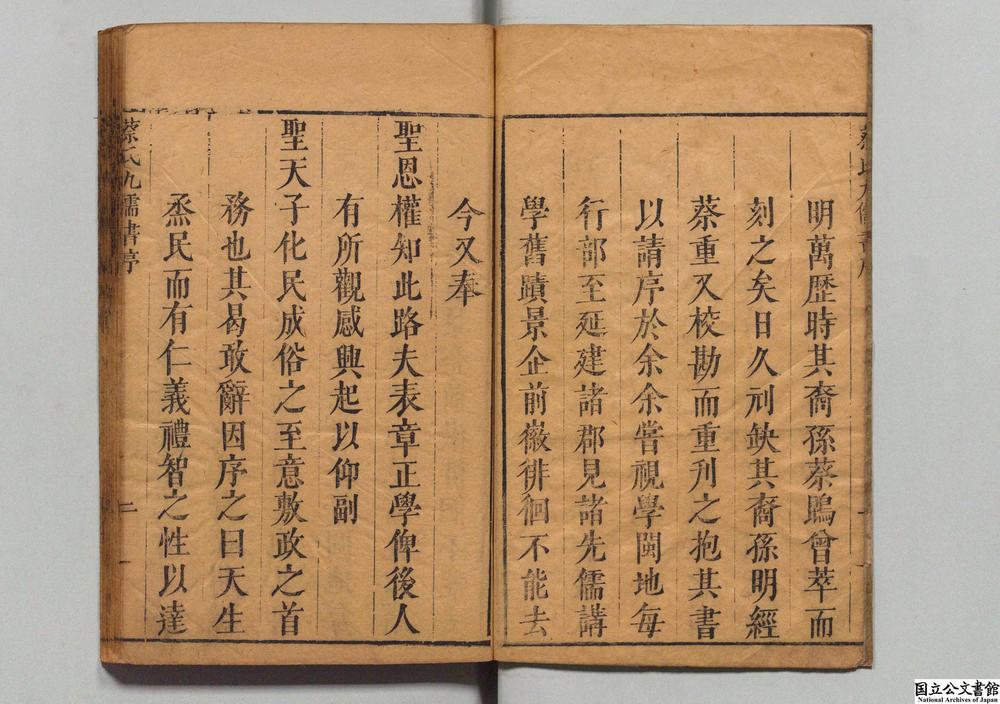 蔡氏九儒書序
明萬歷時其裔孫蔡鵾曾萃而
刻之矣日久刓缺其裔孫明經
蔡重又校勘而重刋之抱其書
以請序於余余嘗視學閩地每
行部至延建諸郡見諸先儒講
學舊蹟景企前徽徘徊不能去
今又奉
聖恩權知此路夫表章正學俾後人
有所觀感興起以仰副
聖天子化民成俗之至意敷政之首
務也其曷敢辭因序之曰天生
烝民而有仁義禮智之性以達
蔡氏九儒書序
二
国立公文書館
National Archives of Japan